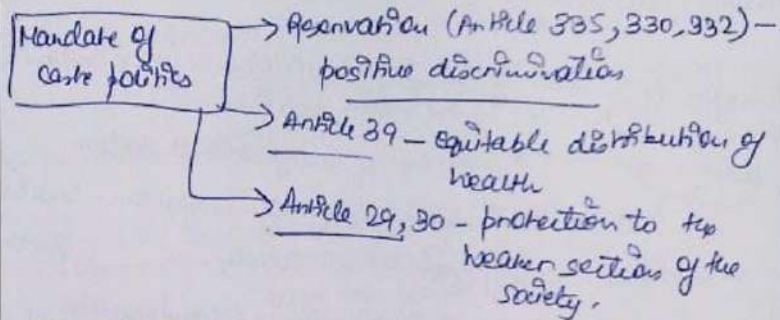 Mandate of
caste politics
Reservation (Article 335, 330, 332) –
positive discrimination
Article 39 – equitable distribution of
wealth
Article 29, 30 – protection to the
weaker sections of the
society.